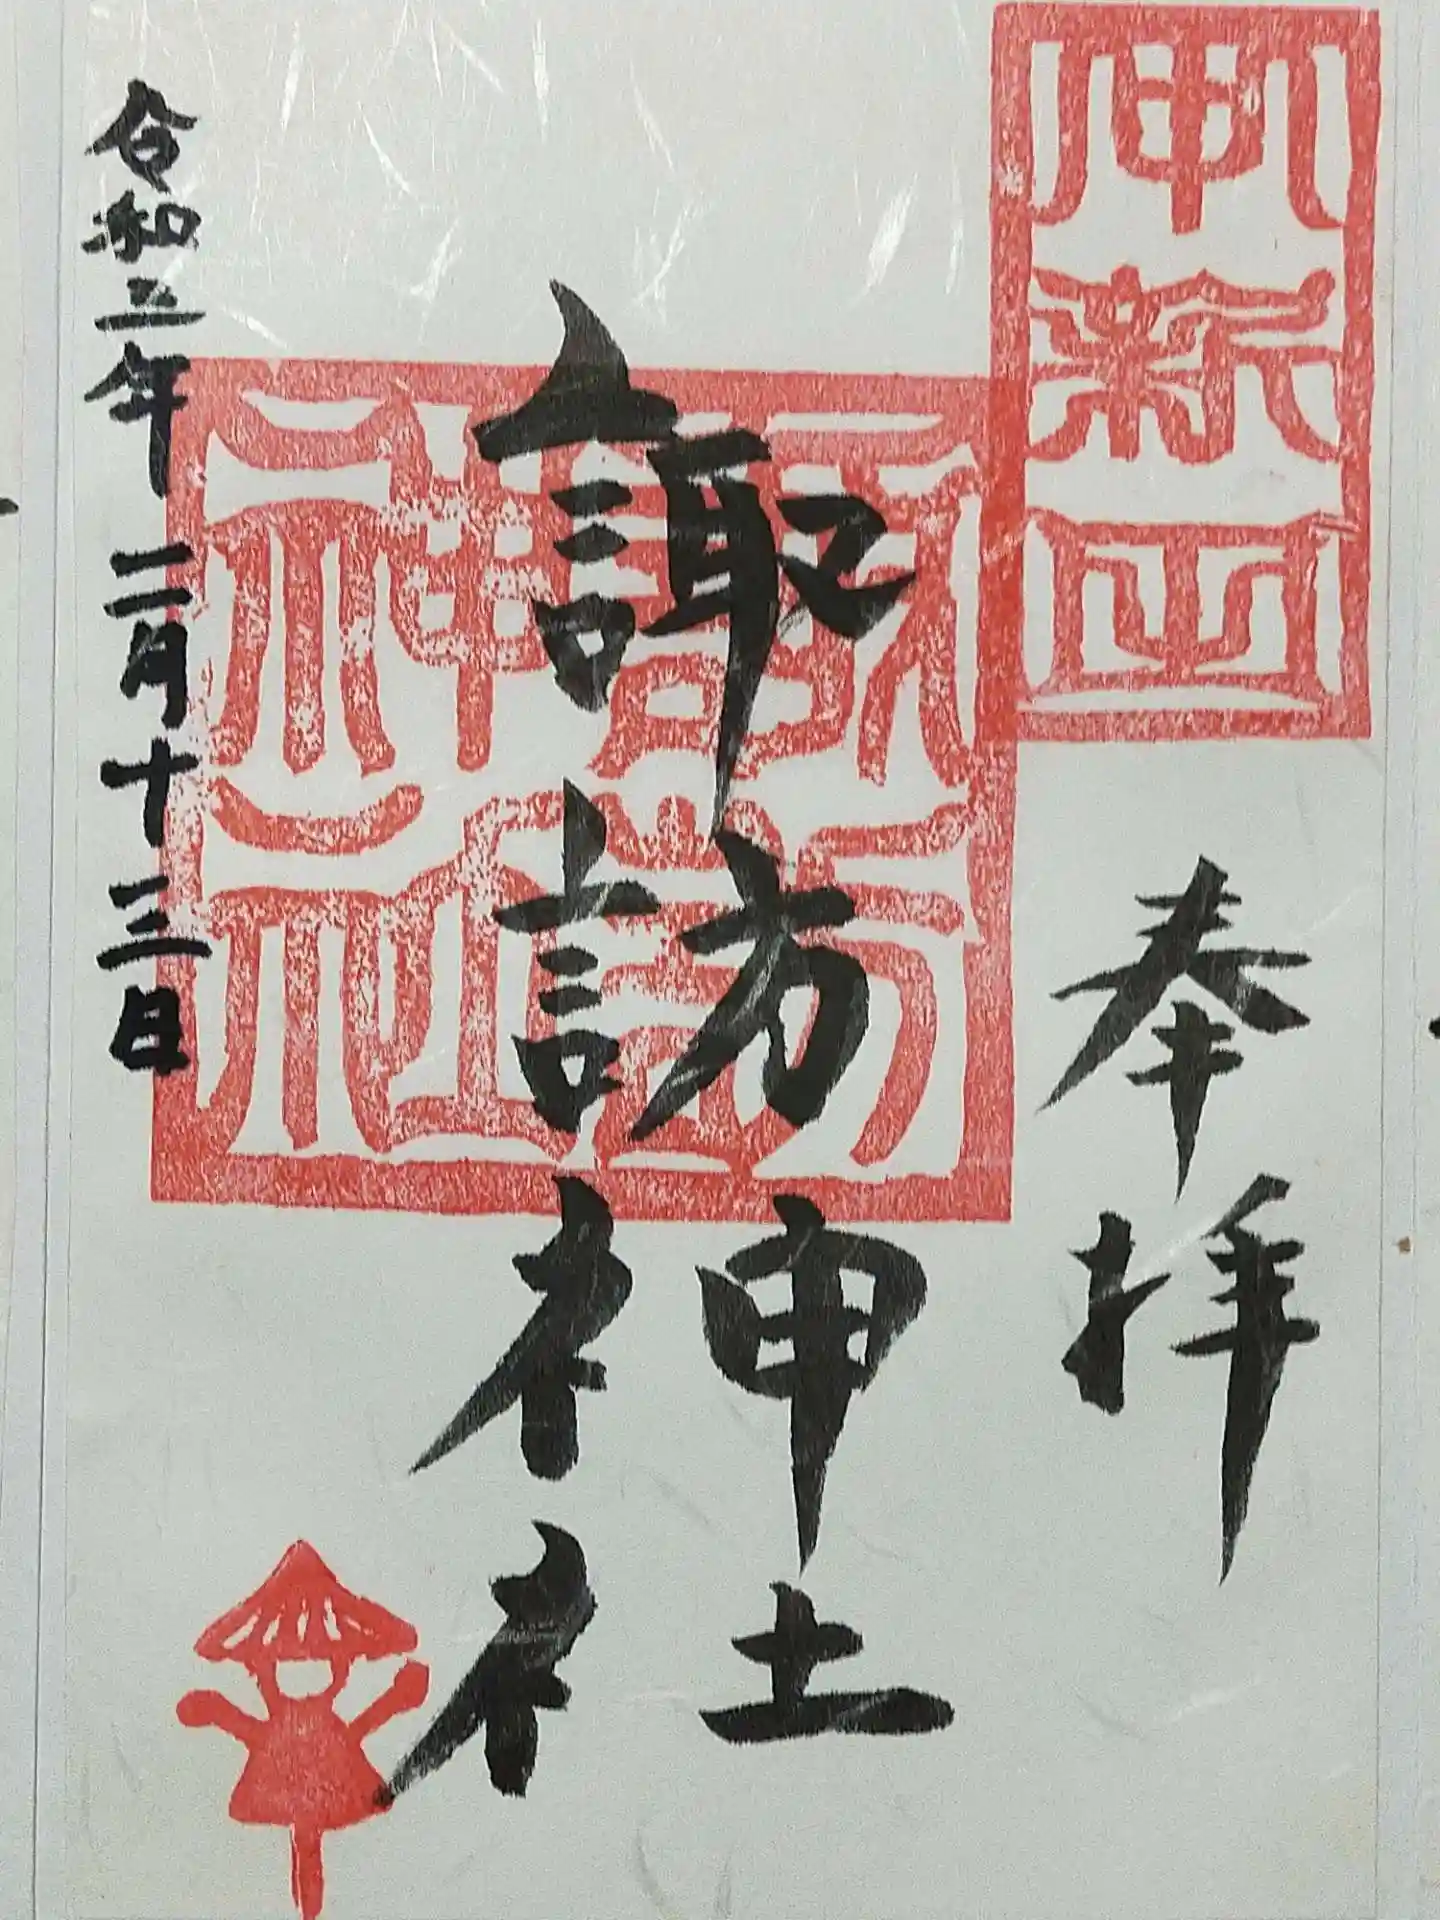 奉拝
諏訪神社
諏訪神社
令和三年 二月十三日